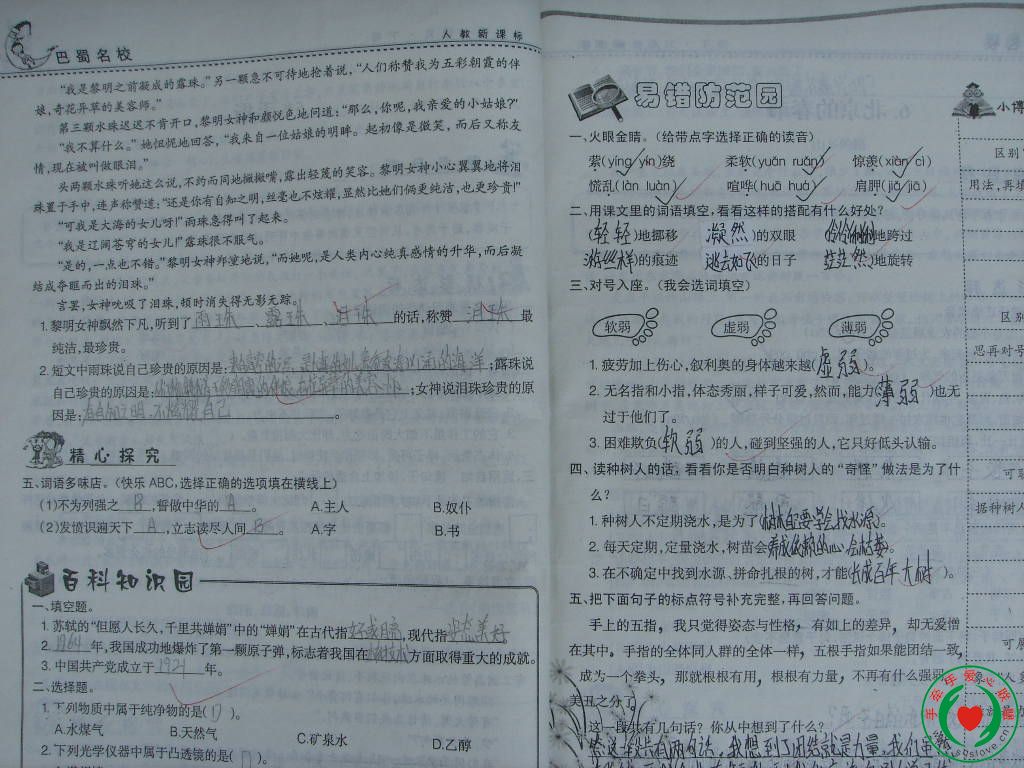 巴蜀名校
人教新课标
“我是黎明之前凝成的露珠。”另一颗急不可待地抢着说，“人们称赞我为五彩朝霞的伴
娘,奇花异草的美容师。”
第三颗水珠迟迟不肯开口,黎明女神和颜悦色地问道：“那么,你呢,我亲爱的小姑娘?”
“我不算什么。”她忸怩地回答，“我来自一位姑娘的明眸。起初像是微笑，而后又称友
情,现在被叫做眼泪。”
头两颗水珠听她这么说,不约而同地撇撇嘴,露出轻蔑的笑容。黎明女神小心翼翼地将泪
珠置于手中,连声称赞道：“还是你有自知之明,丝毫也不炫耀,显然比她们俩更纯洁,也更珍贵!”
“可我是大海的女儿呀!”雨珠急得叫了起来。
“我是辽阔苍穹的女儿!”露珠很不服气。
“是的,一点也不错。”黎明女神郑重地说，“而她呢,是人类内心纯真感情的升华,而后凝
结成夺眶而出的泪珠。”
言罢,女神吮吸了泪珠,顿时消失得无影无踪。
1. 黎明女神飘然下凡,听到了 雨珠 、 露珠 、 泪珠 的话,称赞 泪珠 最
纯洁,最珍贵。
2. 短文中雨珠说自己珍贵的原因是: ;露珠说
自己珍贵的原因是: ;女神说泪珠珍贵的原
因是: 有自知之明,不炫耀自己 。
精心探究
五、词语多味店。(快乐ABC,选择正确的选项填在横线上)
(1)不为列强之 B ,誓做中华的 A 。 A.主人 B.奴仆
(2)发愤识遍天下 A ,立志读尽人间 B 。 A.字 B.书
百科知识园
一、填空题。
1. 苏轼的“但愿人长久,千里共婵娟”中的“婵娟”在古代指 ,现代指 姿态美好
2. 1964 年,我国成功地爆炸了第一颗原子弹,标志着我国在 方面取得重大的成就。
3. 中国共产党成立于 1921 年。
二、选择题。
1. 下列物质中属于纯净物的是( D )。
A.水煤气 B.天然气 C.矿泉水 D.乙醇
2. 下列光学仪器中属于凸透镜的是( D )。
易错防范园
一、火眼金睛。(给带点字选择正确的读音)
萦(yíng yín)绕 柔软(yuǎn ruǎn) 惊羡(xiàn cì)
慌乱(làn luàn) 喧哗(huā huá) 肩胛(jiǎ jiā)
二、用课文里的词语填空,看看这样的搭配有什么好处?
(轻轻)地挪移 (凝然)的双眼 地跨过
(游丝样)的痕迹 (逃去如飞)的日子 (茫茫然)地旋转
三、对号入座。(我会选词填空)
软弱 虚弱 薄弱
1. 疲劳加上伤心,叙利奥的身体越来越(虚弱)。
2. 无名指和小指,体态秀丽,样子可爱,然而,能力(薄弱)也无
过于他们了。
3. 困难欺负(软弱)的人,碰到坚强的人,它只好低头认输。
四、读种树人的话，看看你是否明白种树人的“奇怪”做法是为了什
么?
1. 种树人不定期浇水,是为了(树木自己要学会找水源)。
2. 每天定期,定量浇水,树苗会(养成依赖的心,会枯萎)。
3. 在不确定中找到水源、拼命扎根的树,才能(长成百年大树)。
五、把下面句子的标点符号补充完整,再回答问题。
手上的五指，我只觉得姿态与性格，有如上的差异，却无爱憎
在其中，手指的全体同人群的全体一样，五根手指如果能团结一致,
成为一个拳头，那就根根有用，根根有力量，不再有什么强弱、
美丑之分了。
这一段共有几句话？你从中想到了什么?
答:这一段共有两句话,我想到了团结就是力量,我们
小博
区别
用法,再填
区别
思再对号
可
据种树人
可
手牵手爱心联盟